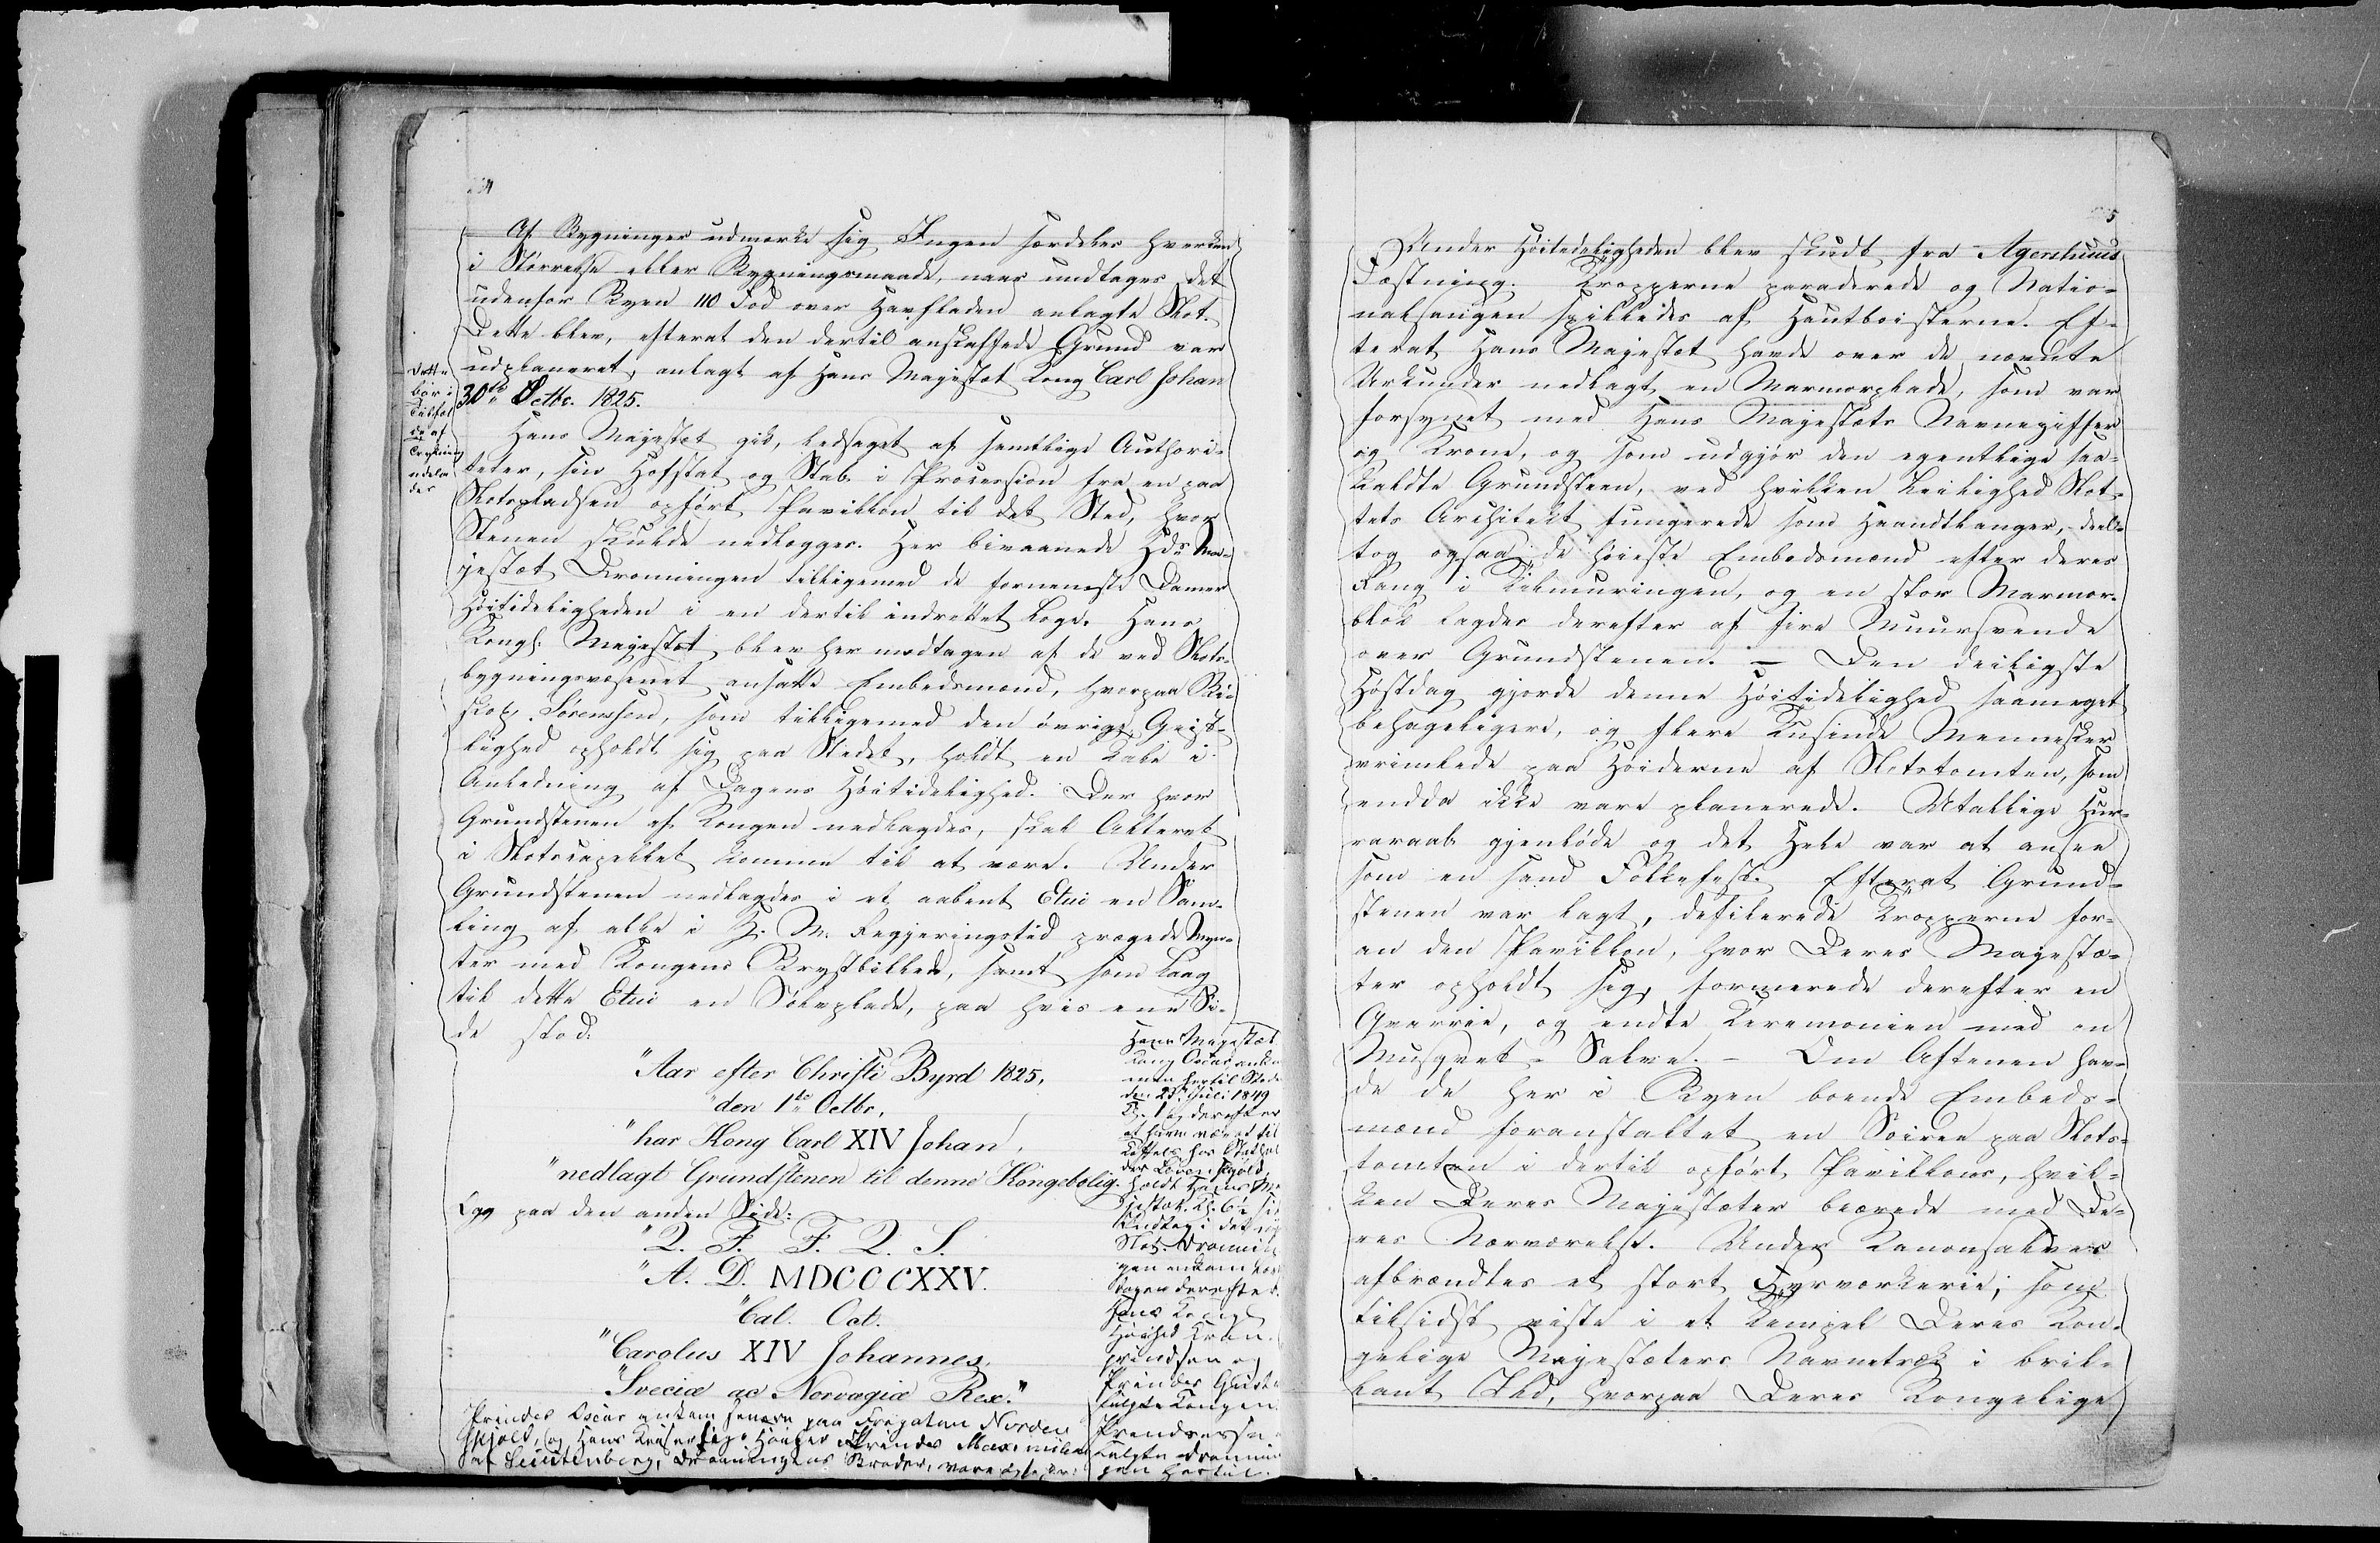 Af Bygninger udmærke sig Ingen særdeles hverken
i Størrelse eller Bygningsmaade, naar undtages det
udenfor Byen 110 Fod over Havfladen anlagte Slot.
Dette blev, efterat den dertil anskaffede Grund var
udplaneret, anlagt af Hans Majestæt Kong Carl Johan
30te Octbr. 1825.
Hans Majestæt gik, ledsaget af samtlige Authori-
teter, sin Hofstat og Stab i Procession fra en paa
Slotspladsen opført Pavillon til det Sted, hvor
Stenen skulde nedlægges. Her bivaanede Hds Ma-
jestæt Dronningen tilligemed de fornemste Damer
Høitideligheden i en dertil indrettet Loge. Hans
Kongl. Majestæt blev her modtagen af de ved Slots-
bygningsvæsenet ansatte Embedsmænd, hvorpaa Bi-
skop Sørenssen, som tilligemed den øvrige Geist-
lighed opholdt sig paa Stedet, holdt en Tale i
Anledning af Dagens Høitidelighed. Der hvor
Grundstenen af Kongen nedlagdes, skal Alteret
i Slotscapellet komme til at være. Under
Grundstenen nedlagdes i et aabent Etui en Sam-
ling af alle i H. M. Regjeringstid prægede Myn-
ter med Kongens Brystbillede, samt som Laag
til dette Etui en Sølvplade, paa hvis ene Si-
de stod:
"Aar efter Christi Byrd 1825,
"den 1te Octbr,
"har Kong Carl XIV Johan,
"nedlagt Grundstenen til denne Kongebolig.
Og paa den anden Side:
"Q. F. F. Q. S.
"A. D. MDCCCXXV.
"Cal. Oct.
"Carolus XIV Johannes,
"Sveciæ ac Norvagiæ Rex."
Prinds Oscar ankom senere paa Fregatten Norden
skjold, og Hans Keiserlige Høihed Prinds Maximilian
af Leuchtenberg, Dronningens Broder, vare
Dette
bør i
Tilfæl
de af
Trykning
udela
des
Hans Majestæt
Kong Oscar ankom
men hertil Stede
den 23de Juli 1849
Kl. 1 og derefter
at have været til
Taffels hos Stathol
der Løvenskjold,
holdt Hans Ma
jestæt Kl. 6½ sit
Indtog i det nye
Slot. Dronnin
gen ankom
Dagen derefter.
Hans Kongl
Høihed Kron-
prindsen og
Prinds Gusta
fulgte Kongen.
Prindsesse
fulgte Dronnin
gen hertil.
5
Under Høitideligheden blev skudt fra Agershuus
Fæstning. Tropperne paraderede og Natio-
nalsangen spilledes af Hautboisterne. Ef-
terat Hans Majestæt havde over de nævnte
Urkunder nedlagt en Marmorplade, som var
forsynet med Hans Majestæts Navneziffer
og Krone, og som udgjør den egentlige saa-
kaldte Grundsteen, ved hvilken Leilighed Slot-
tets Architekt fungerede som Haandtlanger, deel-
tog ogsaa de høieste Embedsmænd efter deres
Rang i Tilmuringen, og en stor Marmor-
blok lagdes derefter af fire Muursvende
over Grundstenen. – Den deiligste
Høstdag gjorde denne Høitidelighed saameget
behageligere, og flere Tusinde Mennesker
vrimlede paa Høiderne af Slotstomten, som
endda ikke vare planerede. Utallige Hur-
raraab gjenløde og det Hele var at ansee
som en sand Folkefest. Efterat Grund-
stenen var lagt, defilerede Tropperne for-
an den Pavillon, hvor Deres Majestæ-
ter opholdt sig, formerede derefter en
Qvarree, og endte Ceremonien med en
Musqvet-Salve. – Om Aftenen hav-
de de her i Byen boende Embeds-
mænd foranstaltet en Soiree paa Slots-
tomten i dertil opført Pavillons, hvil-
ken Deres Majestæter beærede med De-
res Nærværelse. Under Kanonsalver
afbrændtes et stort Fyrværkerie, som
tilsidst viste i et Tempel Deres Kon-
gelige Majestæters Navnetræk i bril-
lant Ild, hvorpaa Deres Kongelige